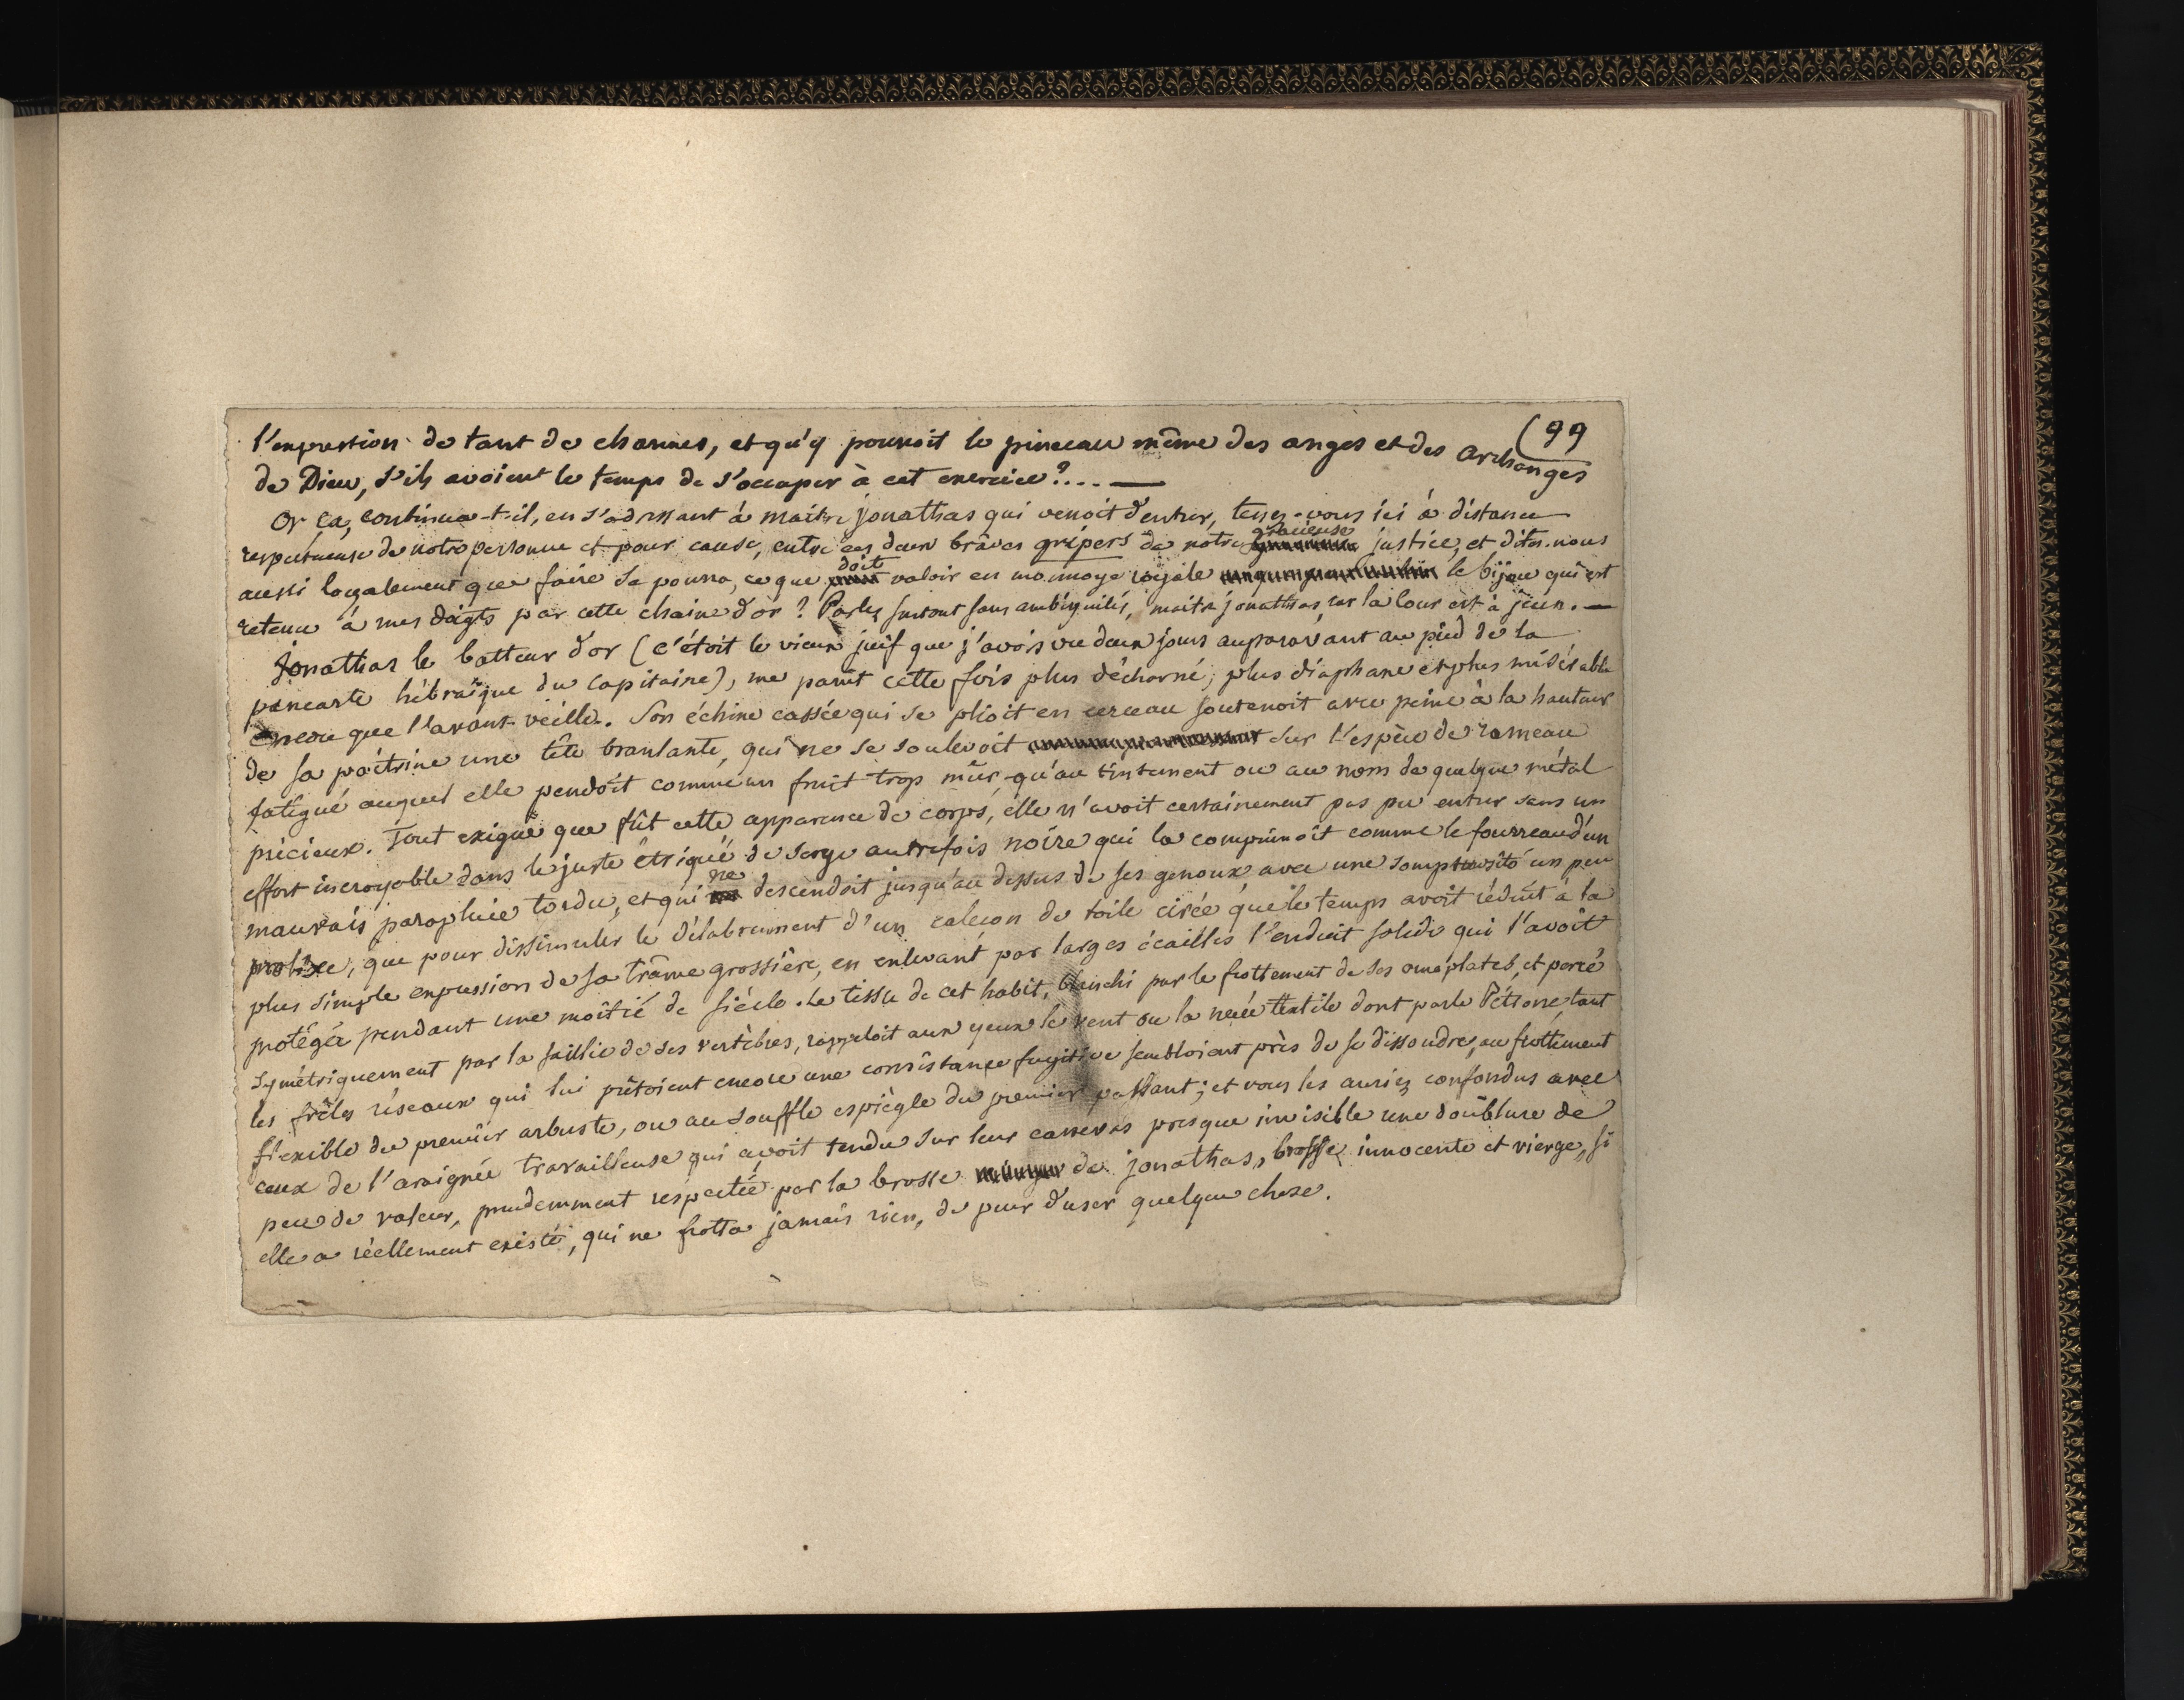 (99
l'expression de tant de charmes, et qu'y pourroit le pinceau même des anges et des archanges
de Dieu, s'ils avoient le temps de s'occuper à cet exercice?.... —
Or ça, continua-t-il, en s'adressant à maitre jonathas qui venoit d'entrer, tenez-vous ici à distance
respectueuse de notre personne et pour cause, entre ces deux brâves gripers de notre gracieuse justice, et dites-nous
aussi loyalement que faire se pourra, ce que doit valoir en monnoye royale le bijou qui est
retenu à mes doigts par cette chaine d'or? Parlez surtout sans ambiguités, maitre jonathas, car la cour est à jeun. —
Jonathas le batteur d'or (c'étoit le vieux juif que j'avois vu deux jours auparavant au pied de la
pancarte hébraïque du capitaine), me parut cette fois plus décharné, plus diaphane et plus misérable
encore que l'avant-veille. Son échine cassée qui se plioit en cerceau soutenoit avec peine à la hauteur
de sa poitrine une tête branlante, qui ne se soulevoit sur l'espèce de rameau
fatigué auquel elle pendoit comme un fruit trop mûr, qu'au tintement ou au nom de quelque métal
précieux. Tout exigüe que fût cette apparence de corps, elle n'avoit certainement pas pu entrer sans un
effort incroyable dans le juste étriqué de serge autrefois noire qui la comprimoit comme le fourreau d'un
mauvais parapluie tordu, et qui ne descendoit jusqu'au dessus de ses genoux avec une somptuosité un peu
prolixe, que pour dissimuler le délabrement d'un caleçon de toile cirée que le temps avoit réduit à la
plus simple expression de sa trâme grossière, en enlevant par larges écailles l'enduit solide qui l'avoit
protégée pendant une moitié de siécle. Le tissu de cet habit, blanchi par le frottement de ses omoplates, et percé
symétriquement par la saillie de ses vertèbres, rappeloit aux yeux le vent ou la nuée textile dont parle Pétrone, tant
les frêles réseaux qui lui prêtoient encore une consistance fugitive sembloient près de se dissoudre, au frottement
flexible du premier arbuste, ou au souffle espiègle du premier passant; et vous les auriez confondus avec
ceux de l'araignée travailleuse qui avoit tendu sur leur canevas presque invisible une doublure de
peu de valeur, prudemment respectée par la brosse de jonathas, brosse innocente et vierge, si
elle a réellement existé, qui ne frotta jamais rien, de peur d'user quelque chose.